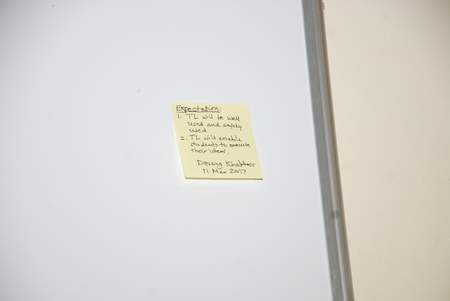 Expectation:
1. TL will be well
used and safely
used
2. TL will enable
students to execute
their ideas.
Khattar
11 Mar 2017